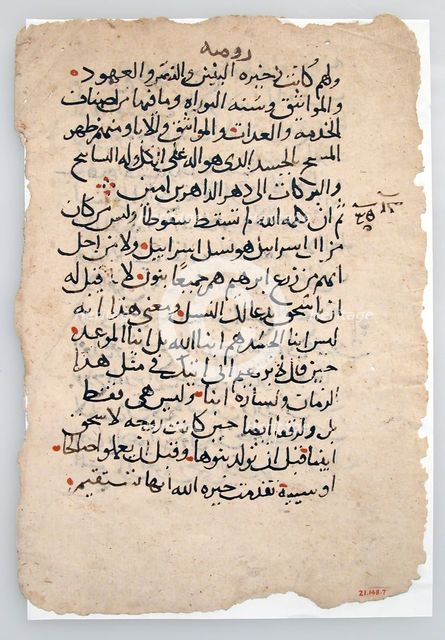 روميه
ولهم كانت ذخيره البنين والذمم والعهود
والمواثيق وسنه التوراه وما فيها من اصناف
الخدمه والعدات والمواثيق والابا ومنهم ظهر
المسيح بالجسد الذي هو اله على الكل وله التسابيح
والبركات الى دهر الداهرين امين
ثم ان كلمه الله لم تسقط سقوطا وليس من كان
من ال اسراييل هو نسل اسراييل ولا من اجل
انهم من زرع ابرهيم هم جميعا بنون لانه قيل له
ان اسحق يدعا لك النسل ومعنى هذا انه
ليس ابنا الجسد هم ابنا الله بل ابنا الموعد
حين قيل لابرهيم اني اتيك في مثل هذا
الزمان ولساره ابنا وليس هي فقط
بل ولرفقا ايضا حين كانت زوجه لاسحق
ابينا قبل ان تولد بنوها وقبل ان يعملوا صالحا
او سيية تقدمت خيره الله انها تستقيم
21.148.7